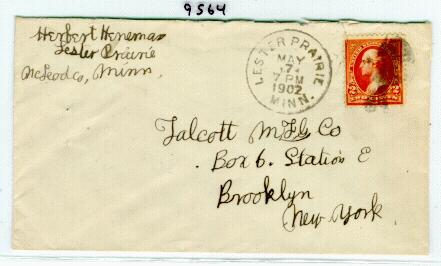 9564
Herbert Heneman
Lester Prairie
McLeod Co, Minn.
LESTER PRAIRIE
MAY
7
7 PM
1902
MINN.
Talcott Mfg Co
Box 6. Station E
Brooklyn
New York.